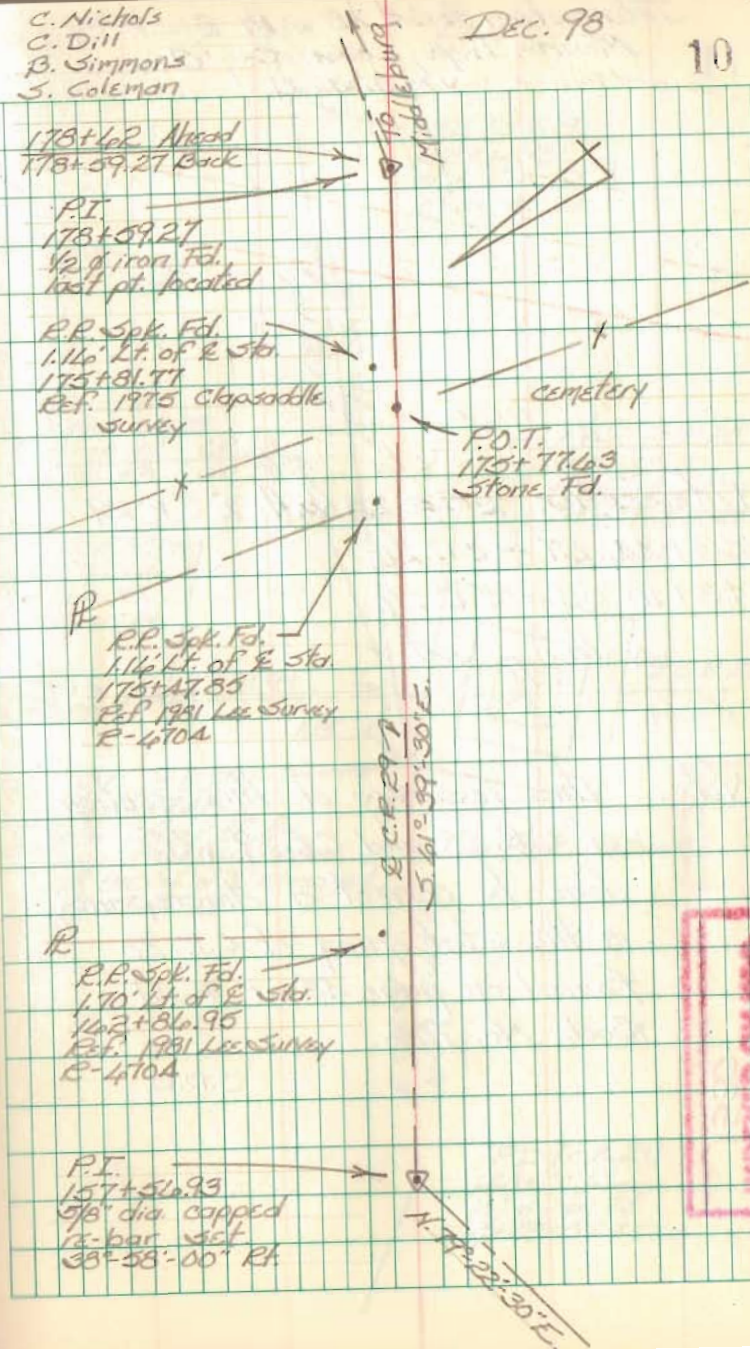 C. Nichols
C. Dill
B. Simmons
S. Coleman
Dec. 98
10
To Middlepump
178+62 Ahead
178+59.27 Back
P.I.
178+59.27
1/2 ø iron Fd.
last pt. located
R.R. Spk. Fd.
1.16' Lt. of ℄ Sta.
175+81.77
Ref. 1975 Clapsaddle
Survey
cemetery
P.O.T.
175+77.63
Stone Fd.
PL
R.R. Spk. Fd.
1.16' Lt. of ℄ Sta.
175+47.85
Ref 1981 Lee Survey
R-470A
℄ C.R. 29-P
S. 61°-39'-30" E.
PL
R.R. Spk. Fd.
1.70' Lt. of ℄ Sta.
162+86.95
Ref. 1981 Lee Survey
R-470A
P.I.
157+56.93
5/8" dia. capped
re-bar set
38°-58'-00" Rt.
N. 79°-22'-30" E.